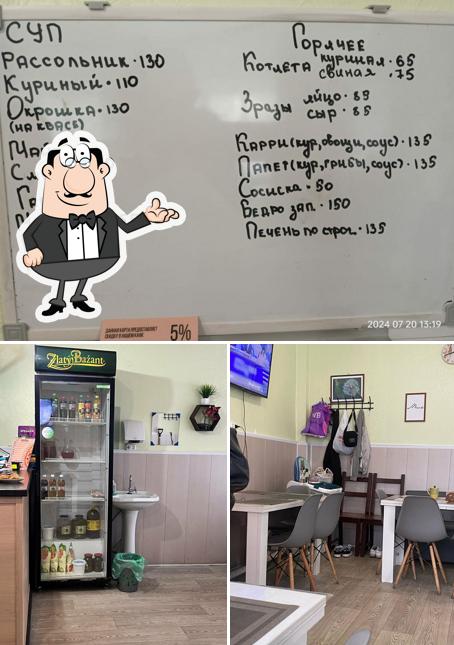 СУП
РАССОЛЬНИК · 130
КУРИНЫЙ · 110
ОКРОШКА · 130
(НА КВАСЕ)
ГОРЯЧЕЕ
КОТЛЕТА КУРИНАЯ · 65
СВИНАЯ · 75
ЗРАЗЫ ЯЙЦО · 85
СЫР · 85
КАРРИ (КУР, ОВОЩИ, СОУС) · 135
ПАПЕТ (КУР, ГРИБЫ, СОУС) · 135
СОСИСКА · 50
БЕДРО ЗАП. · 150
ПЕЧЕНЬ ПО СТРОГ. · 135
ДАННАЯ КАРТА ПРЕДОСТАВЛЯЕТ
5%
2024 07 20 13:19
Zlatý Bažant